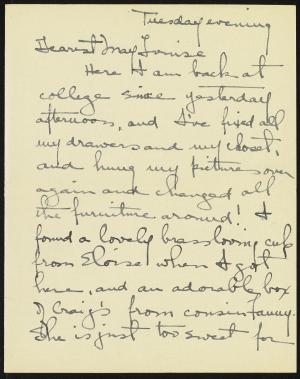 Tuesday evening
Dearest May Louise
Here I am back at
college since yesterday
afternoon, and I've fixed all
my drawers and my closet,
and hung my pictures over
again and changed all
the furniture around! I
found a lovely brass loving cup
from Eloise when I got
here, and an adorable box
of Craig's from cousin Fanny.
She is just too sweet for